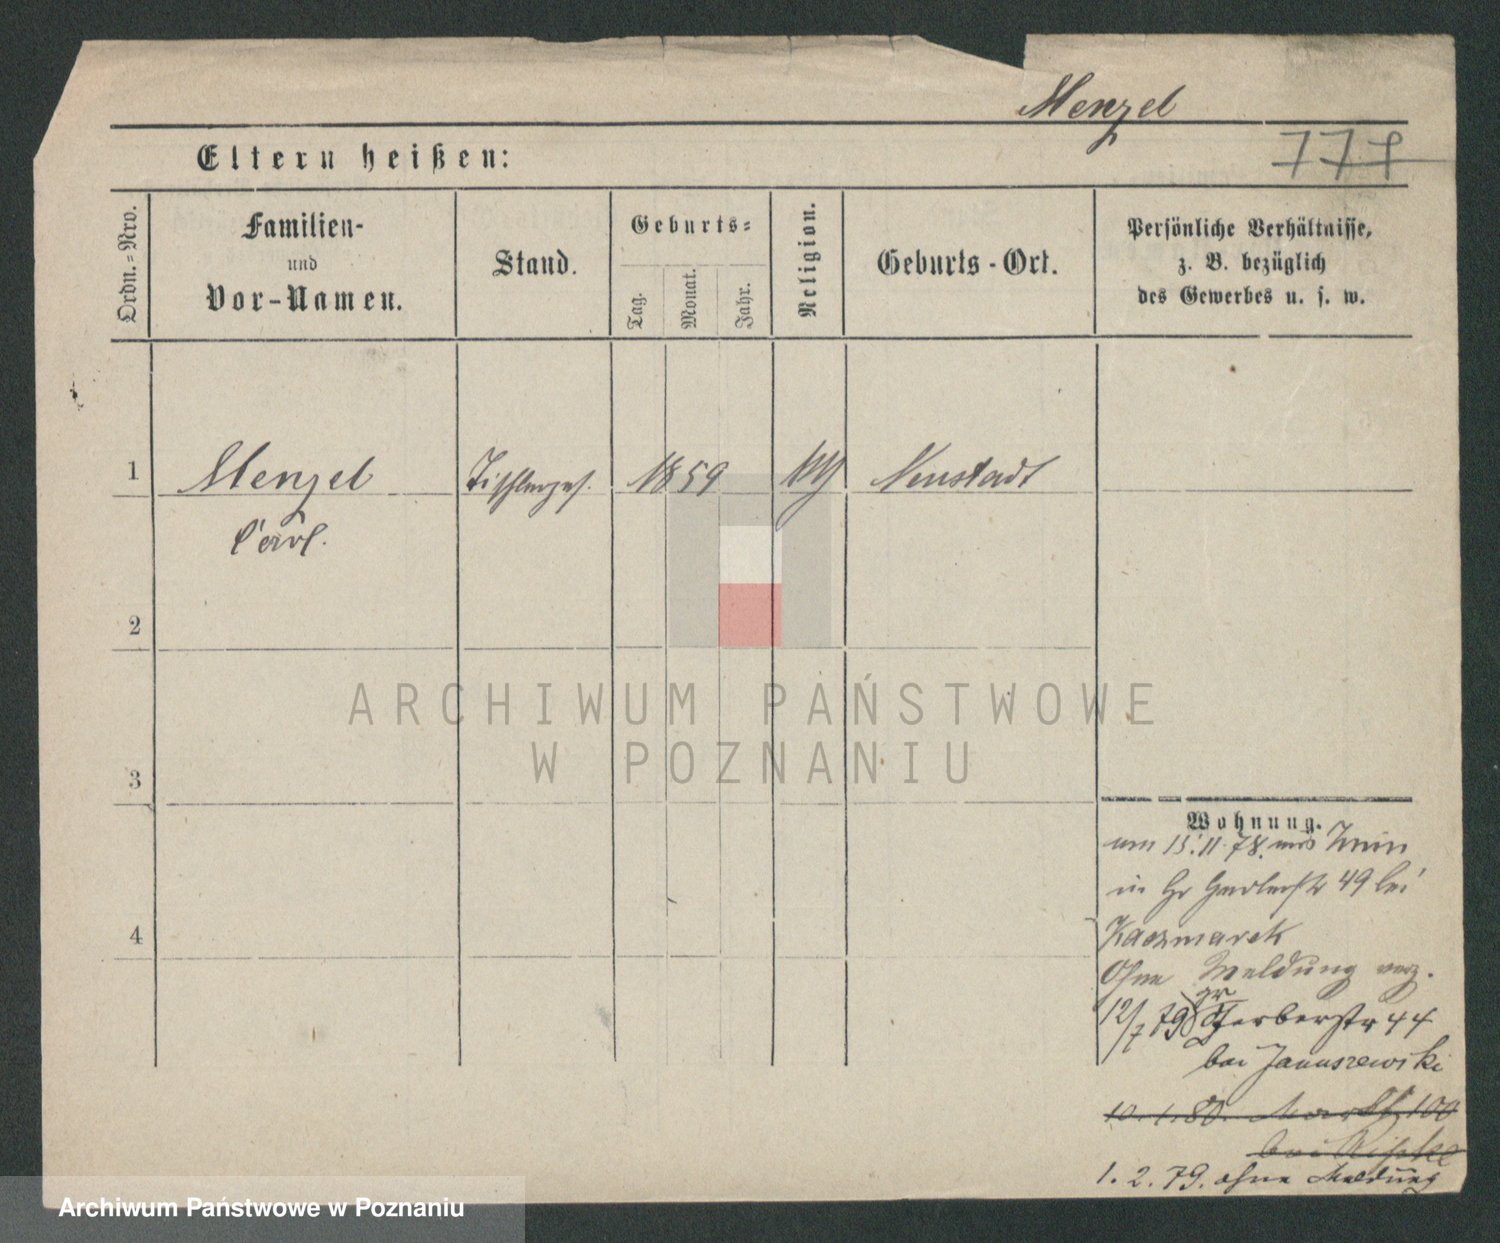 Menzel
777
Eltern heißen:
Ordn.-Nro.
Familien-
und
Vor-Namen.
Stand.
Geburts-
Tag.
Monat.
Jahr.
Religion.
Geburts-Ort.
Persönliche Verhältnisse,
z. B. bezüglich
des Gewerbes u. s. w.
1
Menzel
Tischlerges.
1859
Neustadt
Carl.
2
ARCHIWUM PAŃSTWOWE
W POZNANIU
3
Wohnung.
am 15.11.78. aus
in Gr Gerberstr 49 bei
Kaczmarek
4
Ohne Meldung verz.
12/7 79 gr Gerberstr 44
bei Januszewski
10.1.80. Markt 100
bei
1.2.79. ohne Meldung
Archiwum Państwowe w Poznaniu